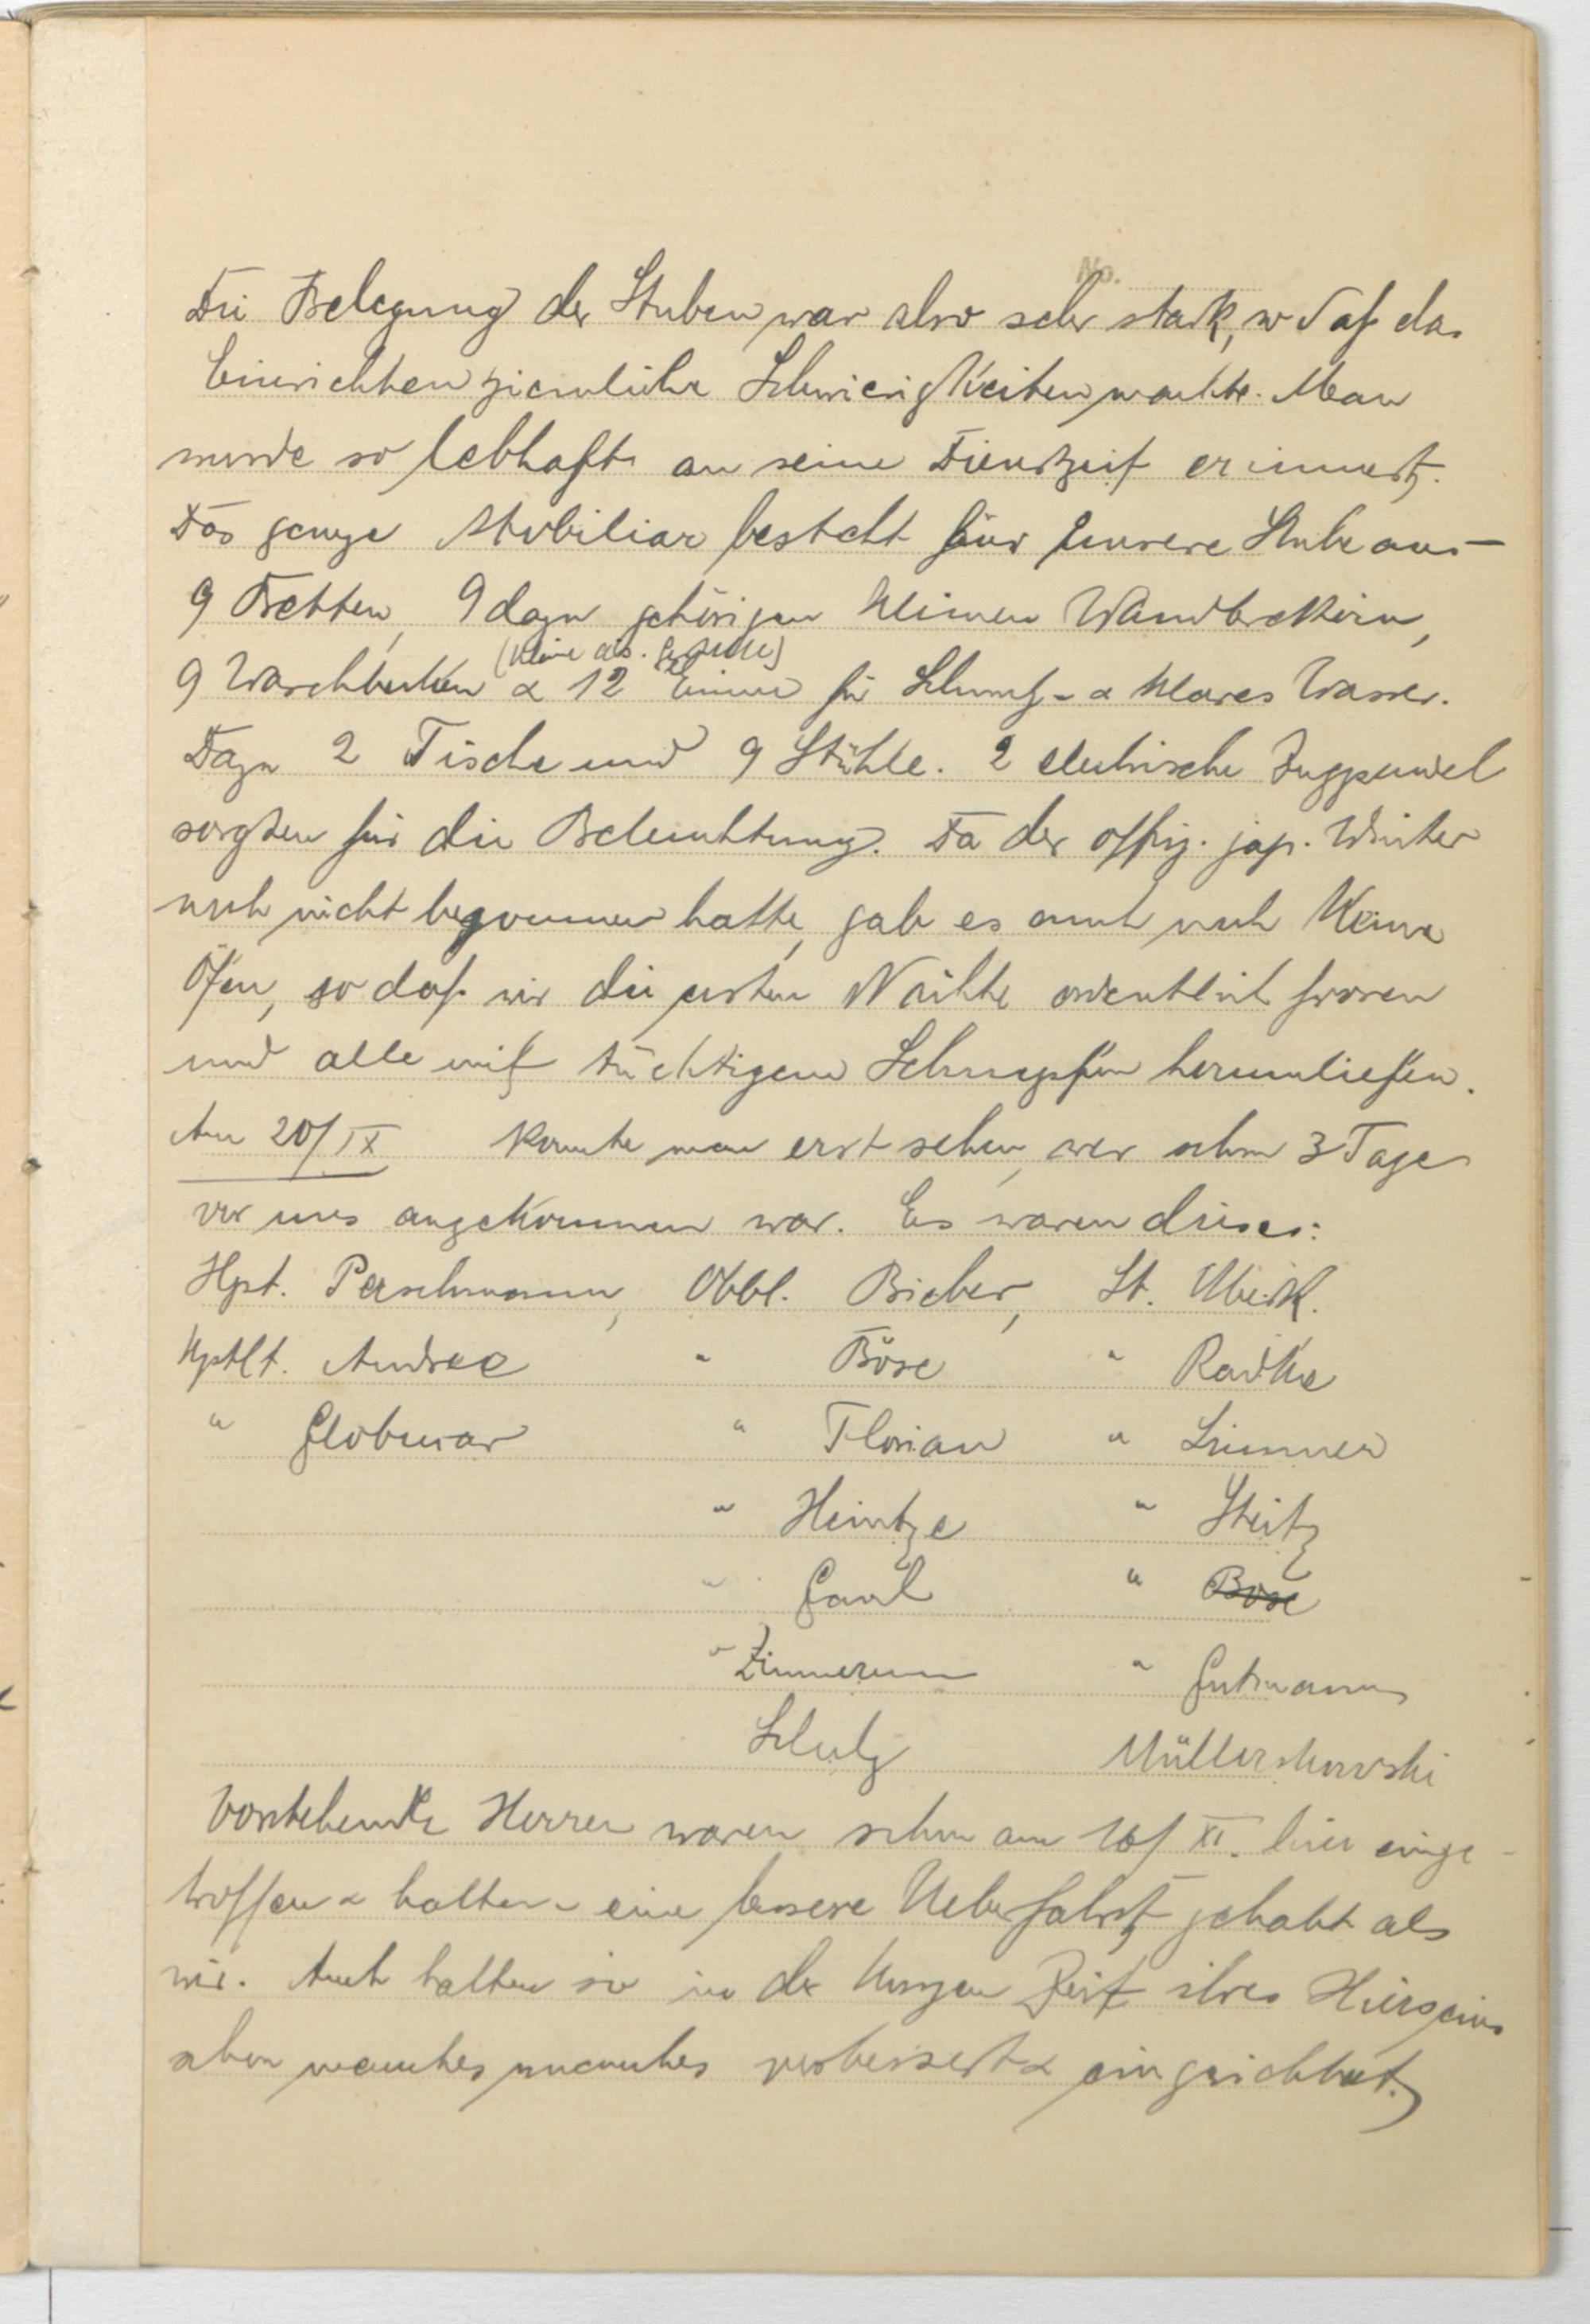 No.
Die Belegung der Stuben war also sehr stark, so daß das
Einrichten ziemliche Schwierigkeiten machte. Man
wurde so lebhaft an seine Dienstzeit erinnert.
Das ganze Mobiliar besteht für unsere Stube aus
9 Betten, 9 dazu gehörigen kleinen Wandbrettern,
(kleine als
9 Waschbecken & 12 Eimer für Schmutz- & klares Wasser.
Dazu 2 Tische und 9 Stühle. 2 elektrische Zugpendel
sorgten für die Beleuchtung. Da der offiz. jap. Winter
noch nicht begonnen hatte, gab es auch noch keine
Öfen, so daß wir die ersten Nächte ordentlich froren
und alle mit tüchtigem Schnupfen herumliefen.
Am 20/IX konnte man erst sehen, wer schon 3 Tage
vor uns angekommen war. Es waren dieses:
Hpt. Perschmann, Obbl. Bieber, Lt.
Kptlt. Andree " Böse " Radke
" " Florian "
" Heintze " Steitz
" Gaul " Böse
" Zimmermann " Gutmann
Schulz Müllerskowski
Vorstehende Herren waren schon am 16/XI. hier einge-
troffen & hatten eine bessere Ueberfahrt gehabt als
wir. Auch hatten sie in der kurzen Zeit ihres Hierseins
schon manches verbessert & eingerichtet.